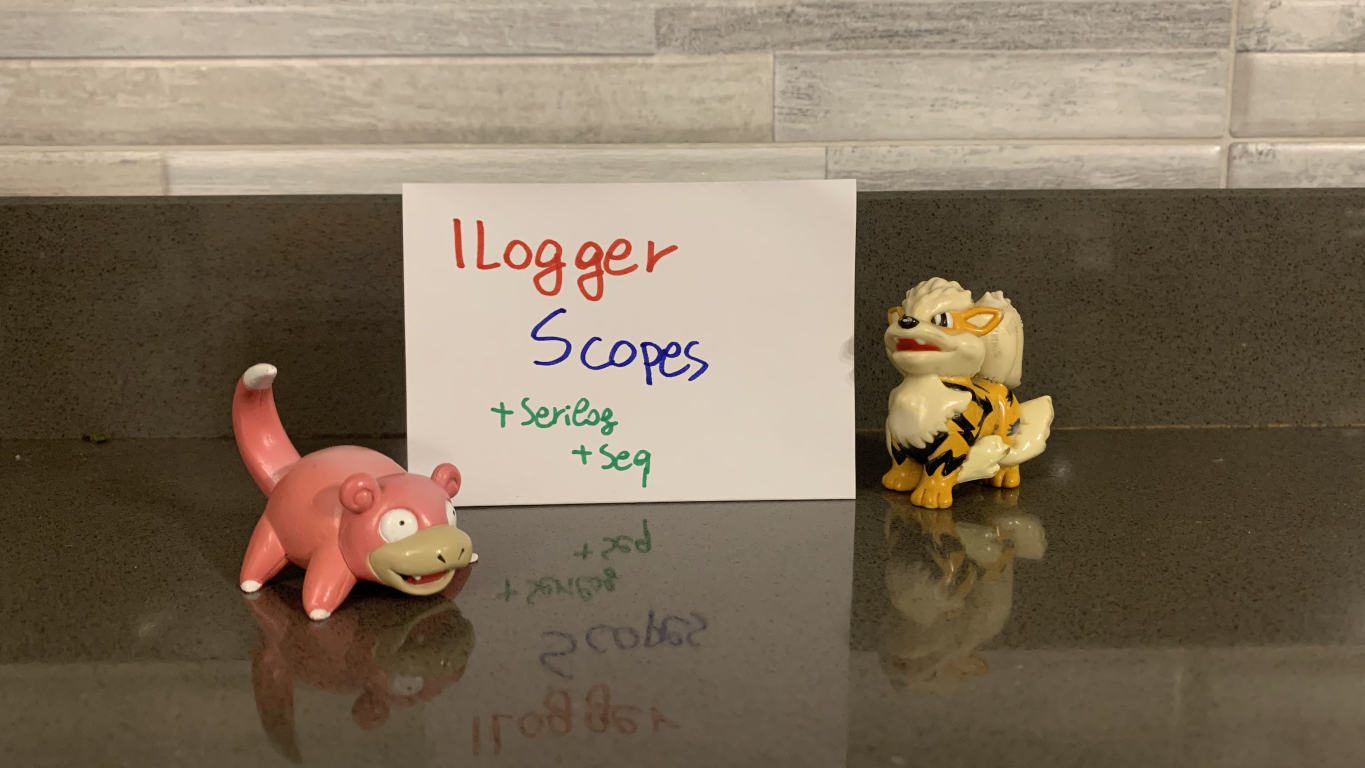 ILogger
Scopes
+Serilog
+Seq